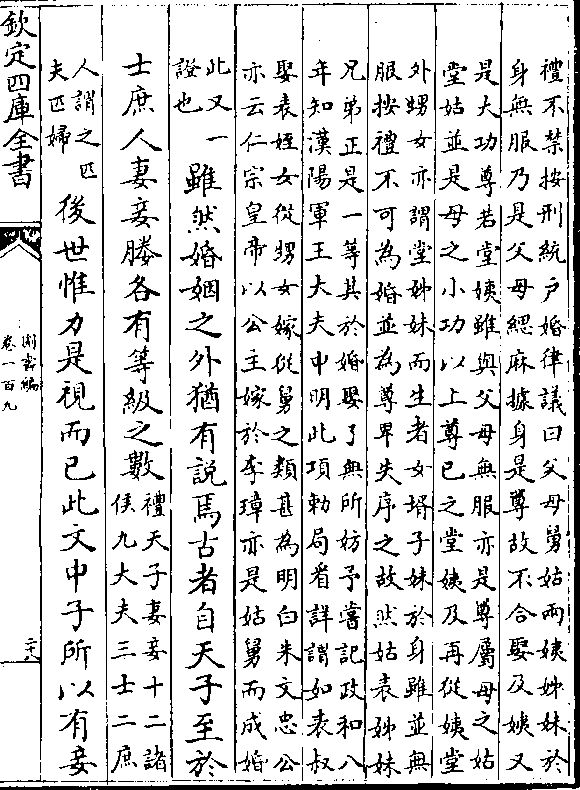 禮不禁按刑統户婚律議曰父母舅姑兩姨姊妹於
身無服乃是父母緦麻據身是尊故不合娶及姨又
是大功尊若堂姨雖與父母無服亦是尊屬母之姑
堂姑並是母之小功以上尊已之堂姨及再從姨堂
外甥女亦謂堂姊妹而生者女壻子妹於身雖並無
服按禮不可為婚並為尊卑失序之故然姑表姊妹
兄弟正是一等其於婚娶了無所妨予嘗記政和八
年知漢陽軍王大夫申明此項勅局看詳謂如表叔
娶表姪女從甥女嫁從舅之類甚為明白朱文忠公
亦云仁宗皇帝以公主嫁於李璋亦是姑舅而成婚
此又一
證也
雖然婚姻之外猶有説焉古者自天子至於
士庶人妻妾媵各有等級之數
禮天子妻妾十二諸
侯九大夫三士二庶
人謂之匹
夫匹婦
後世惟力是視而已此文中子所以有妾
欽定四庫全書
圖書編
卷一百九
二十八